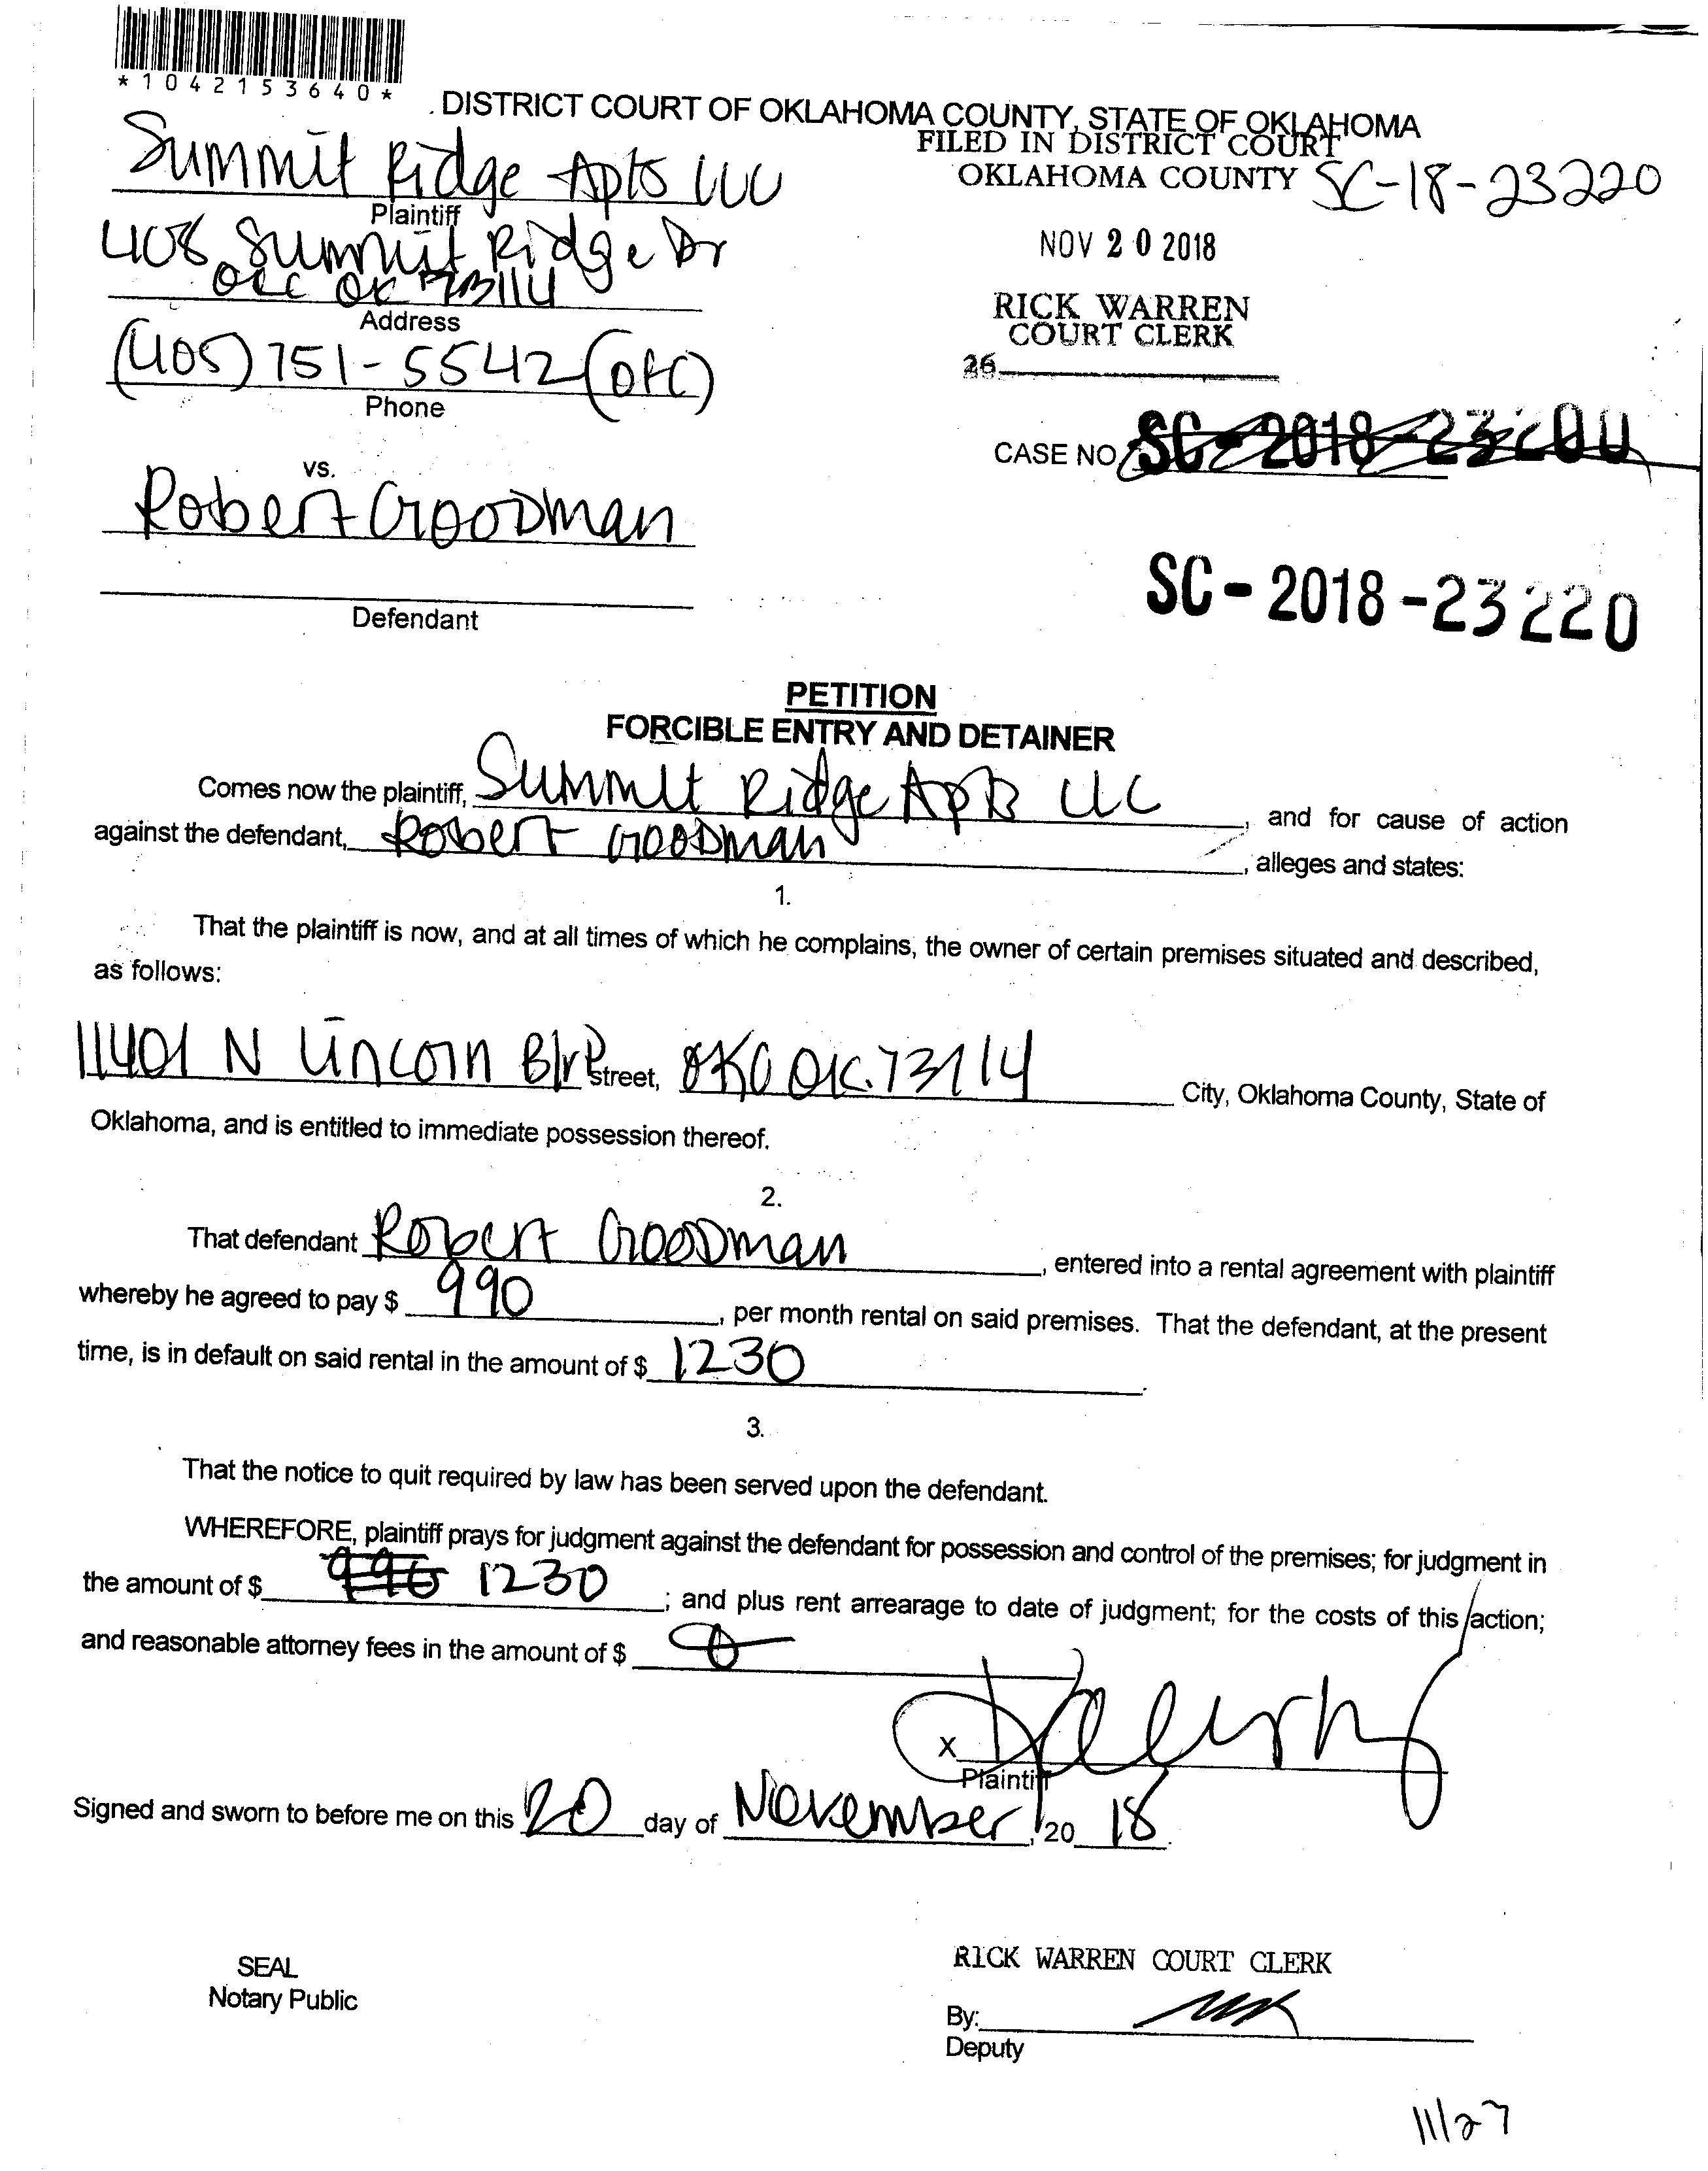 *1042153640*
DISTRICT COURT OF OKLAHOMA COUNTY, STATE OF OKLAHOMA
FILED IN DISTRICT COURT
OKLAHOMA COUNTY SC-18-23220
Summit Ridge Apts LLC
Plaintiff
408 Summit Ridge Dr
OKC OK 73114
Address
(405) 751-5542 (OFC)
Phone
NOV 20 2018
RICK WARREN
COURT CLERK
26
CASE NO. SC-2018-23200
vs.
Robert GooDman
Defendant
SC-2018-23220
PETITION
FORCIBLE ENTRY AND DETAINER
Comes now the plaintiff, Summit Ridge Apts LLC, and for cause of action
against the defendant, Robert GooDman, alleges and states:
1.
That the plaintiff is now, and at all times of which he complains, the owner of certain premises situated and described,
as follows:
11401 N Lincoln Blvd Street, OKC OK. 73114 City, Oklahoma County, State of
Oklahoma, and is entitled to immediate possession thereof.
2.
That defendant Robert GooDman, entered into a rental agreement with plaintiff
whereby he agreed to pay $ 990, per month rental on said premises. That the defendant, at the present
time, is in default on said rental in the amount of $ 1230.
3.
That the notice to quit required by law has been served upon the defendant.
WHEREFORE, plaintiff prays for judgment against the defendant for possession and control of the premises; for judgment in
the amount of $ 990 1230; and plus rent arrearage to date of judgment; for the costs of this action;
and reasonable attorney fees in the amount of $ 0
X
Plaintiff
Signed and sworn to before me on this 20 day of November, 20 18.
SEAL
Notary Public
RICK WARREN COURT CLERK
By:
Deputy
11/27